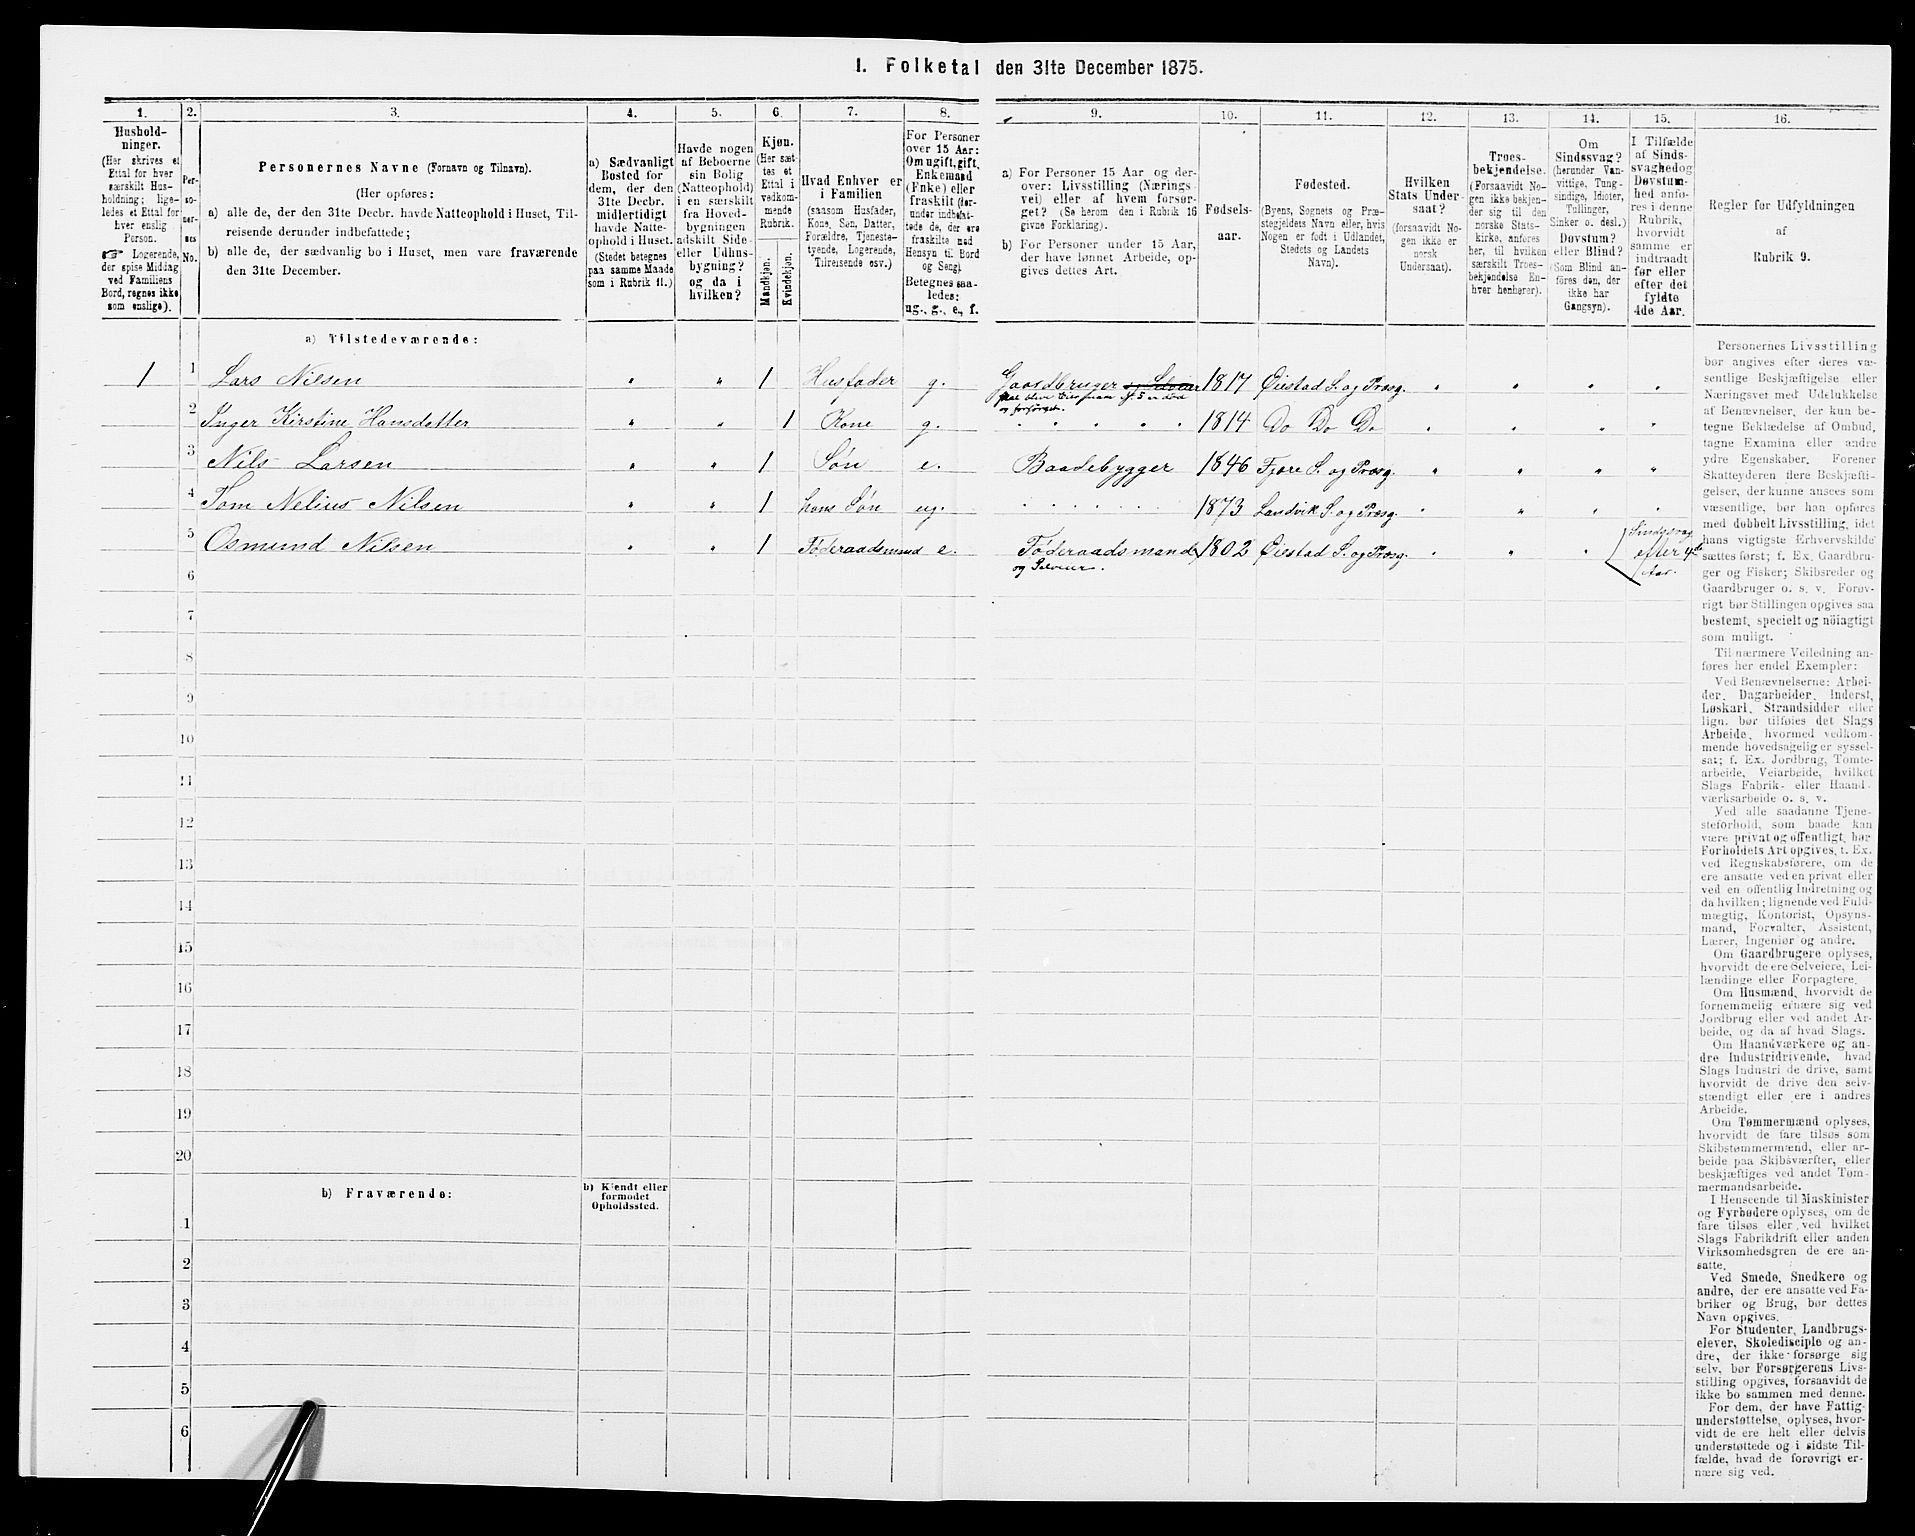 I. Folketal den 31te December 1875.
1. 2. 3. 4. 5. 6. 7. 8. 9. 10. 11. 12. 13. 14. 15. 16.
Hushold-
ninger.
(Her skrives et
Ettal for hver
særskilt Hus-
holdning; lige-
ledes et Ettal for
hver enslig
Person.
☞ Logerende,
der spise Middag
ved Familiens
Bord, regnes ikke
som enslige).
Per-
so-
ner-
nes
No.
Personernes Navne (Fornavn og Tilnavn).
(Her opføres:
a) alle de, der den 31te Decbr. havde Natteophold i Huset, Til-
reisende derunder indbefattede;
b) alle de, der sædvanlig bo i Huset, men vare fraværende
den 31te December.
a) Sædvanligt
Bosted for
dem, der den
31te Decbr.
midlertidigt
havde Natte-
ophold i Huset.
(Stedet betegnes
paa samme Maade
som i Rubrik 11.)
Havde nogen
af Beboerne
sin Bolig
(Natteophold)
i en særskilt
fra Hoved-
bygningen
adskilt Side-
eller Udhus-
bygning?
og da i
hvilken?
Kjøn.
(Her sæt-
tes et
Ettal i
vedkom-
mende
Rubrik.
Mandkjøn.
Kvindekjøn.
Hvad Enhver er
i Familien
(saasom Husfader,
Kone, Søn, Datter,
Forældre, Tjeneste-
tyende, Logerende,
Tilreisende osv.)
For Personer
over 15 Aar:
Om ugift, gift,
Enkemand
(Enke) eller
fraskilt (der-
under indbefat-
tede de, der ere
fraskilte med
Hensyn til Bord
og Seng).
Betegnes saa-
ledes:
ug., g., e., f.
a) For Personer 15 Aar og der-
over: Livsstilling (Nærings-
vei) eller af hvem forsør-
get? (Se herom den i Rubrik 16
givne Forklaring).
b) For Personer under 15 Aar,
der have lønnet Arbeide, op-
gives dettes Art.
Fødsels-
aar.
Fødested.
(Byens, Sognets og Præ-
stegjeldets Navn eller, hvis
Nogen er født i Udlandet,
Stedets og Landets
Navn).
Hvilken
Stats Under-
saat?
(forsaavidt No-
gen ikke er
norsk
Undersaat).
Troes-
bekjendelse.
(Forsaavidt No-
gen ikke bekjen-
der sig til den
norske Stats-
kirke, anføres
her, til hvilken
særskilt Troes-
bekjendelse En-
hver henhører).
Om
Sindssvag?
(herunder Van-
vittige, Tung-
sindige, Idioter,
Tullinger,
Sinker o. desl.)
Døvstum?
eller Blind?
(Som Blind an-
føres den, der
ikke har
Gangsyn).
I Tilfælde
af Sinds-
svaghed og
Døvstum-
hed anfø-
res i denne
Rubrik,
hvorvidt
samme er
indtraadt
før eller
efter det
fyldte
4de Aar.
Regler for Udfyldningen
af
Rubrik 9.
a) Tilstedeværende:
1 1 Lars Nilsen " " 1 Husfader g. Gaardbruger og Selveier 1817 Øiestad S. og Præsg. " " " "
No. 5 er død
og forsørget.
2 Inger Kirstine Hansdatter " " 1 Kone g. " " " " " 1814 Do Do Do " " " "
3 Nils Larsen " " 1 Søn e. Baadebygger 1846 Fjære S. og Præsg. " " " "
4 Tom Nelius Nilsen " " 1 hans Søn ug. " " " " " " 1873 Landvik S. og Præsg. " " " "
5 Osmund Nilsen " " 1 Føderaadsmand e. Føderaadsmand 1802 Øiestad S. og Præsg. " " " Sindssvag
og Selveier. efter 4de
Aar.
6
7
8
9
10
11
12
13
14
15
16
17
18
19
20
b) Fraværende:
b) Kjendt eller
formodet
Opholdssted.
1
2
3
4
5
6
Personernes Livsstilling
bør angives efter deres væ-
sentlige Beskjæftigelse eller
Næringsvei med Udelukkelse
af Benævnelser, der kun be-
tegne Beklædelse af Ombud,
tagne Examina eller andre
ydre Egenskaber. Forener
Skatteyderen flere Beskjæfti-
gelser, der kunne ansees som
væsentlige, bør han opføres
med dobbelt Livsstilling, idet
hans vigtigste Erhvervskilde
sættes først; f. Ex. Gaardbru-
ger og Fisker; Skibsreder og
Gaardbruger o. s. v. Forøv-
rigt bør Stillingen opgives saa
bestemt, specielt og nöiagtigt
som muligt.
Til nærmere Veiledning an-
føres her endel Exempler:
Ved Benævnelserne: Arbei-
der, Dagarbeider, Inderst,
Løskarl, Strandsidder eller
lign. bør tilføies det Slags
Arbeide, hvormed vedkom-
mende hovedsagelig er syssel-
sat; f. Ex. Jordbrug, Tomte-
arbeide, Veiarbeide, hvilket
Slags Fabrik- eller Haand-
værksarbeide o. s. v.
Ved alle saadanne Tjene-
steforhold, som baade kan
være privat og offentligt, bør
Forholdets Art opgives, f. Ex.
ved Regnskabsførere, om de
ere ansatte ved en privat eller
ved en offentlig Indretning og
da hvilken; lignende ved Fuld-
mægtig, Kontorist, Opsyns-
mand, Forvalter, Assistent,
Lærer, Ingeniør og andre.
Om Gaardbrugere oplyses,
hvorvidt de ere Selveiere, Lei-
lændinge eller Forpagtere.
Om Husmænd, hvorvidt de
fornemmelig ernære sig ved
Jordbrug eller ved andet Ar-
beide, og da af hvad Slags.
Om Haandværkere og an-
dre Industridrivende, hvad
Slags Industri de drive, samt
hvorvidt de drive den selv-
stændigt eller ere i andres
Arbeide.
Om Tømmermænd oplyses,
hvorvidt de fare tilsøs som
Skibstømmermænd, eller ar-
beide paa Skibsværfter, eller
beskjæftiges ved andet Tøm-
mermandsarbeide.
I Henseende til Maskinister
og Fyrbødere oplyses, om de
fare tilsøs eller ved hvilket
Slags Fabrikdrift eller anden
Virksomhedsgren de ere an-
satte.
Ved Smede, Snedkere og
andre, der ere ansatte ved Fa-
briker og Brug, bør dettes
Navn opgives.
For Studenter, Landbrugs-
elever, Skoledisciple og an-
dre, der ikke forsørge sig
selv, bør Forsørgerens Livs-
stilling opgives, forsaavidt de
ikke bo sammen med denne.
For dem, der have Fattig-
understøttelse, oplyses, hvor-
vidt de ere helt eller delvis
understøttede og i sidste Til-
fælde, hvad de forøvrigt er-
nære sig ved.